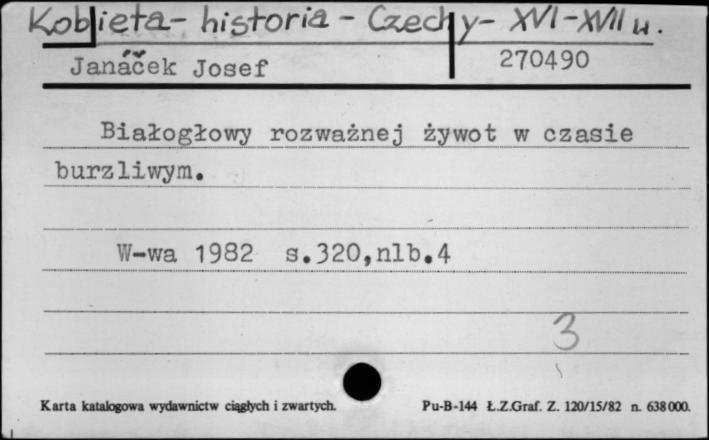 Kobieta - historia - Czechy - XVI-XVII w.
Janáček Josef 270490
Białogłowy rozważnej żywot w czasie
burzliwym.
W-wa 1982 s.320,nlb.4
3
Karta katalogowa wydawnictw ciągłych i zwartych. Pu-B-144 Ł.Z.Graf. Z. 120/15/82 n. 638000.